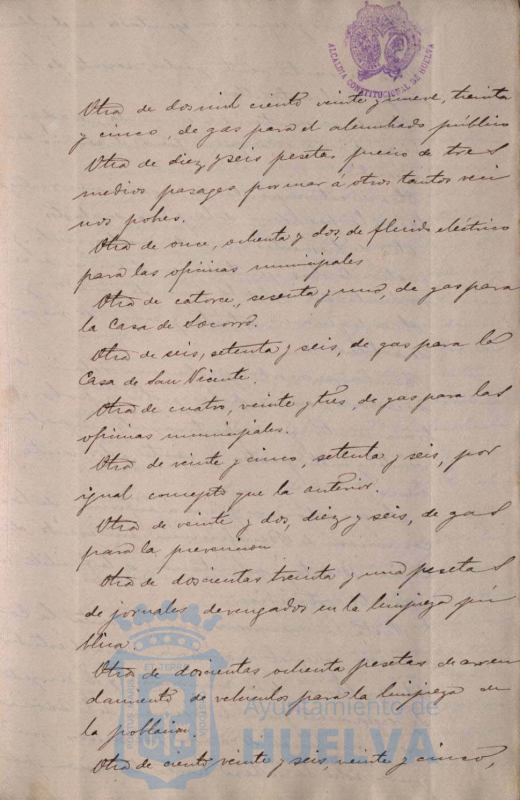 ALCALDIA CONSTITUCIONAL DE HUELVA
Otra de dos mil ciento veinte y nueve, treinta
y cinco, de gas para el alumbrado público
Otra de diez y seis pesetas precio de tres
medios pasages por mar á otros tantos veci
nos pobres.
Otra de once, ochenta y dos, de fluido eléctrico
para las oficinas municipales
Otra de catorce, sesenta y uno, de gas para
la Casa de Socorro.
Otra de seis, setenta y seis, de gas para la
Casa de San Vicente.
Otra de cuatro, veinte y tres, de gas para las
oficinas municipales.
Otra de veinte y cinco, setenta y seis, por
igual concepto que la anterior.
Otra de veinte y dos, diez y seis, de gas
para la prevencion
Otra de doscientas treinta y una pesetas
de jornales devengados en la limpieza pú
blica.
Otra de doscientas ochenta pesetas de arren
damiento de vehículos para la limpieza de
la poblacion.
Otra de ciento veinte y seis, veinte y cinco,
Ayuntamiento de
HUELVA